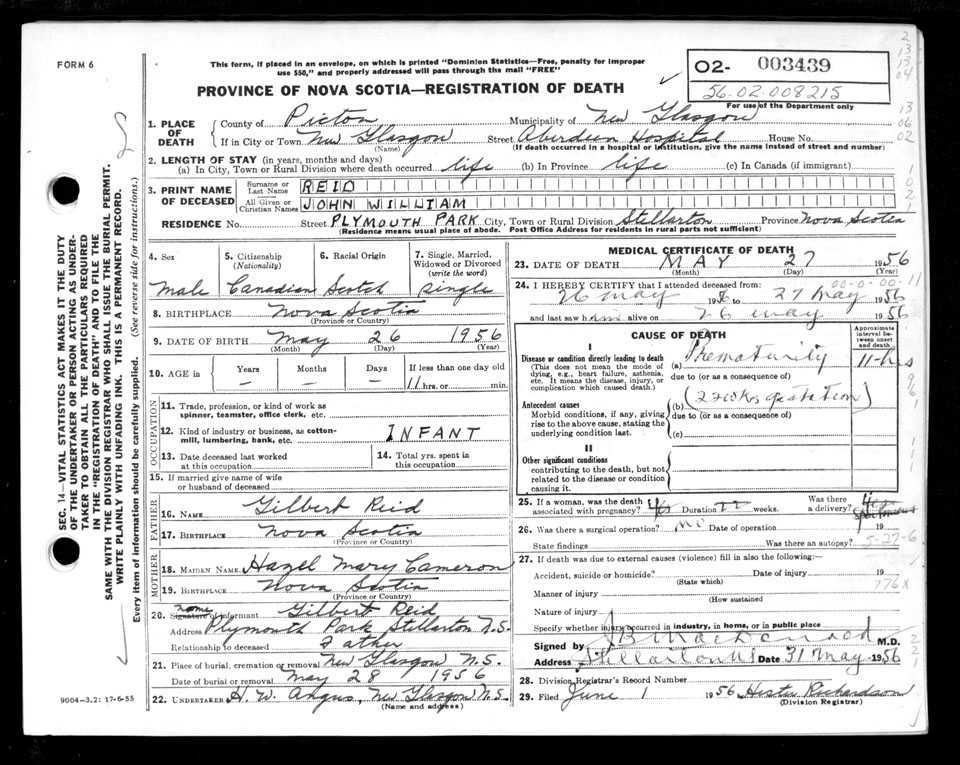 FORM 6
This form, if placed in an envelope, on which is printed "Dominion Statistics—Free, penalty for improper
use $50," and properly addressed will pass through the mail "FREE"
PROVINCE OF NOVA SCOTIA—REGISTRATION OF DEATH
02- 003439
56-02-008215
For use of the Department only
1. PLACE OF DEATH
County of Pictou Municipality of New Glasgow
If in City or Town New Glasgow Street Aberdeen Hospital House No.
(Name) (If death occurred in a hospital or institution, give the name instead of street and number)
2. LENGTH OF STAY (in years, months and days)
(a) In City, Town or Rural Division where death occurred life (b) In Province life (c) In Canada (if immigrant)
3. PRINT NAME OF DECEASED
Surname or Last Name REID
All Given or Christian Names JOHN WILLIAM
RESIDENCE No. Street PLYMOUTH PARK City, Town or Rural Division Stellarton Province Nova Scotia
(Residence means usual place of abode. Post Office Address for residents in rural parts not sufficient)
4. Sex
Male
5. Citizenship (Nationality)
Canadian
6. Racial Origin
Scotch
7. Single, Married, Widowed or Divorced (write the word)
single
8. BIRTHPLACE Nova Scotia
(Province or Country)
9. DATE OF BIRTH May 26 1956
(Month) (Day) (Year)
10. AGE in Years Months Days If less than one day old
— — — 11 hrs. or min.
OCCUPATION
11. Trade, profession, or kind of work as spinner, teamster, office clerk, etc.
12. Kind of industry or business, as cotton-mill, lumbering, bank, etc. INFANT
13. Date deceased last worked at this occupation
14. Total yrs. spent in this occupation
15. If married give name of wife or husband of deceased
FATHER
16. NAME Gilbert Reid
17. BIRTHPLACE Nova Scotia
(Province or Country)
MOTHER
18. MAIDEN NAME Hazel Mary Cameron
19. BIRTHPLACE Nova Scotia
(Province or Country)
20. Signature of informant name Gilbert Reid
Address Plymouth Park Stellarton N.S.
Relationship to deceased Father
21. Place of burial, cremation or removal New Glasgow N.S.
Date of burial or removal May 28 1956
22. UNDERTAKER H. W. Angus, New Glasgow N.S.
(Name and address)
MEDICAL CERTIFICATE OF DEATH
23. DATE OF DEATH MAY 27 1956
(Month) (Day) (Year)
00-0-00-11
24. I HEREBY CERTIFY that I attended deceased from:
26 may 1956 to 27 May 1956
and last saw him alive on 26 may 1956
CAUSE OF DEATH
Approximate interval between onset and death
I
Disease or condition directly leading to death
(This does not mean the mode of dying, e.g., heart failure, asthenia, etc. It means the disease, injury, or complication which caused death.)
(a) Prematurity 11-hrs
due to (or as a consequence of)
Antecedent causes
Morbid conditions, if any, giving rise to the above cause, stating the underlying condition last.
(b) (22 wks gestation)
due to (or as a consequence of)
(c)
II
Other significant conditions
contributing to the death, but not related to the disease or condition causing it.
25. If a woman, was the death associated with pregnancy? yes Duration 22 weeks. Was there a delivery? yes
26. Was there a surgical operation? no Date of operation 19
State findings Was there an autopsy?
5-27-6
27. If death was due to external causes (violence) fill in also the following:—
Accident, suicide or homicide? Date of injury 19
(State which)
776X
Manner of injury
(How sustained
Nature of injury
Specify whether injury occurred in industry, in home, or in public place
Signed by M.D.
Address Stellarton NS Date 31 May 1956
28. Division Registrar's Record Number
29. Filed June 1 1956 Hester Richardson
(Division Registrar)
SEC. 14—VITAL STATISTICS ACT MAKES IT THE DUTY
OF THE UNDERTAKER OR PERSON ACTING AS UNDER-
TAKER TO OBTAIN ALL THE PARTICULARS REQUIRED
IN THE "REGISTRATION OF DEATH" AND TO FILE THE
SAME WITH THE DIVISION REGISTRAR WHO SHALL ISSUE THE BURIAL PERMIT.
WRITE PLAINLY WITH UNFADING INK. THIS IS A PERMANENT RECORD.
Every item of information should be carefully supplied. (See reverse side for instructions.)
9004—3.2: 17-6-55